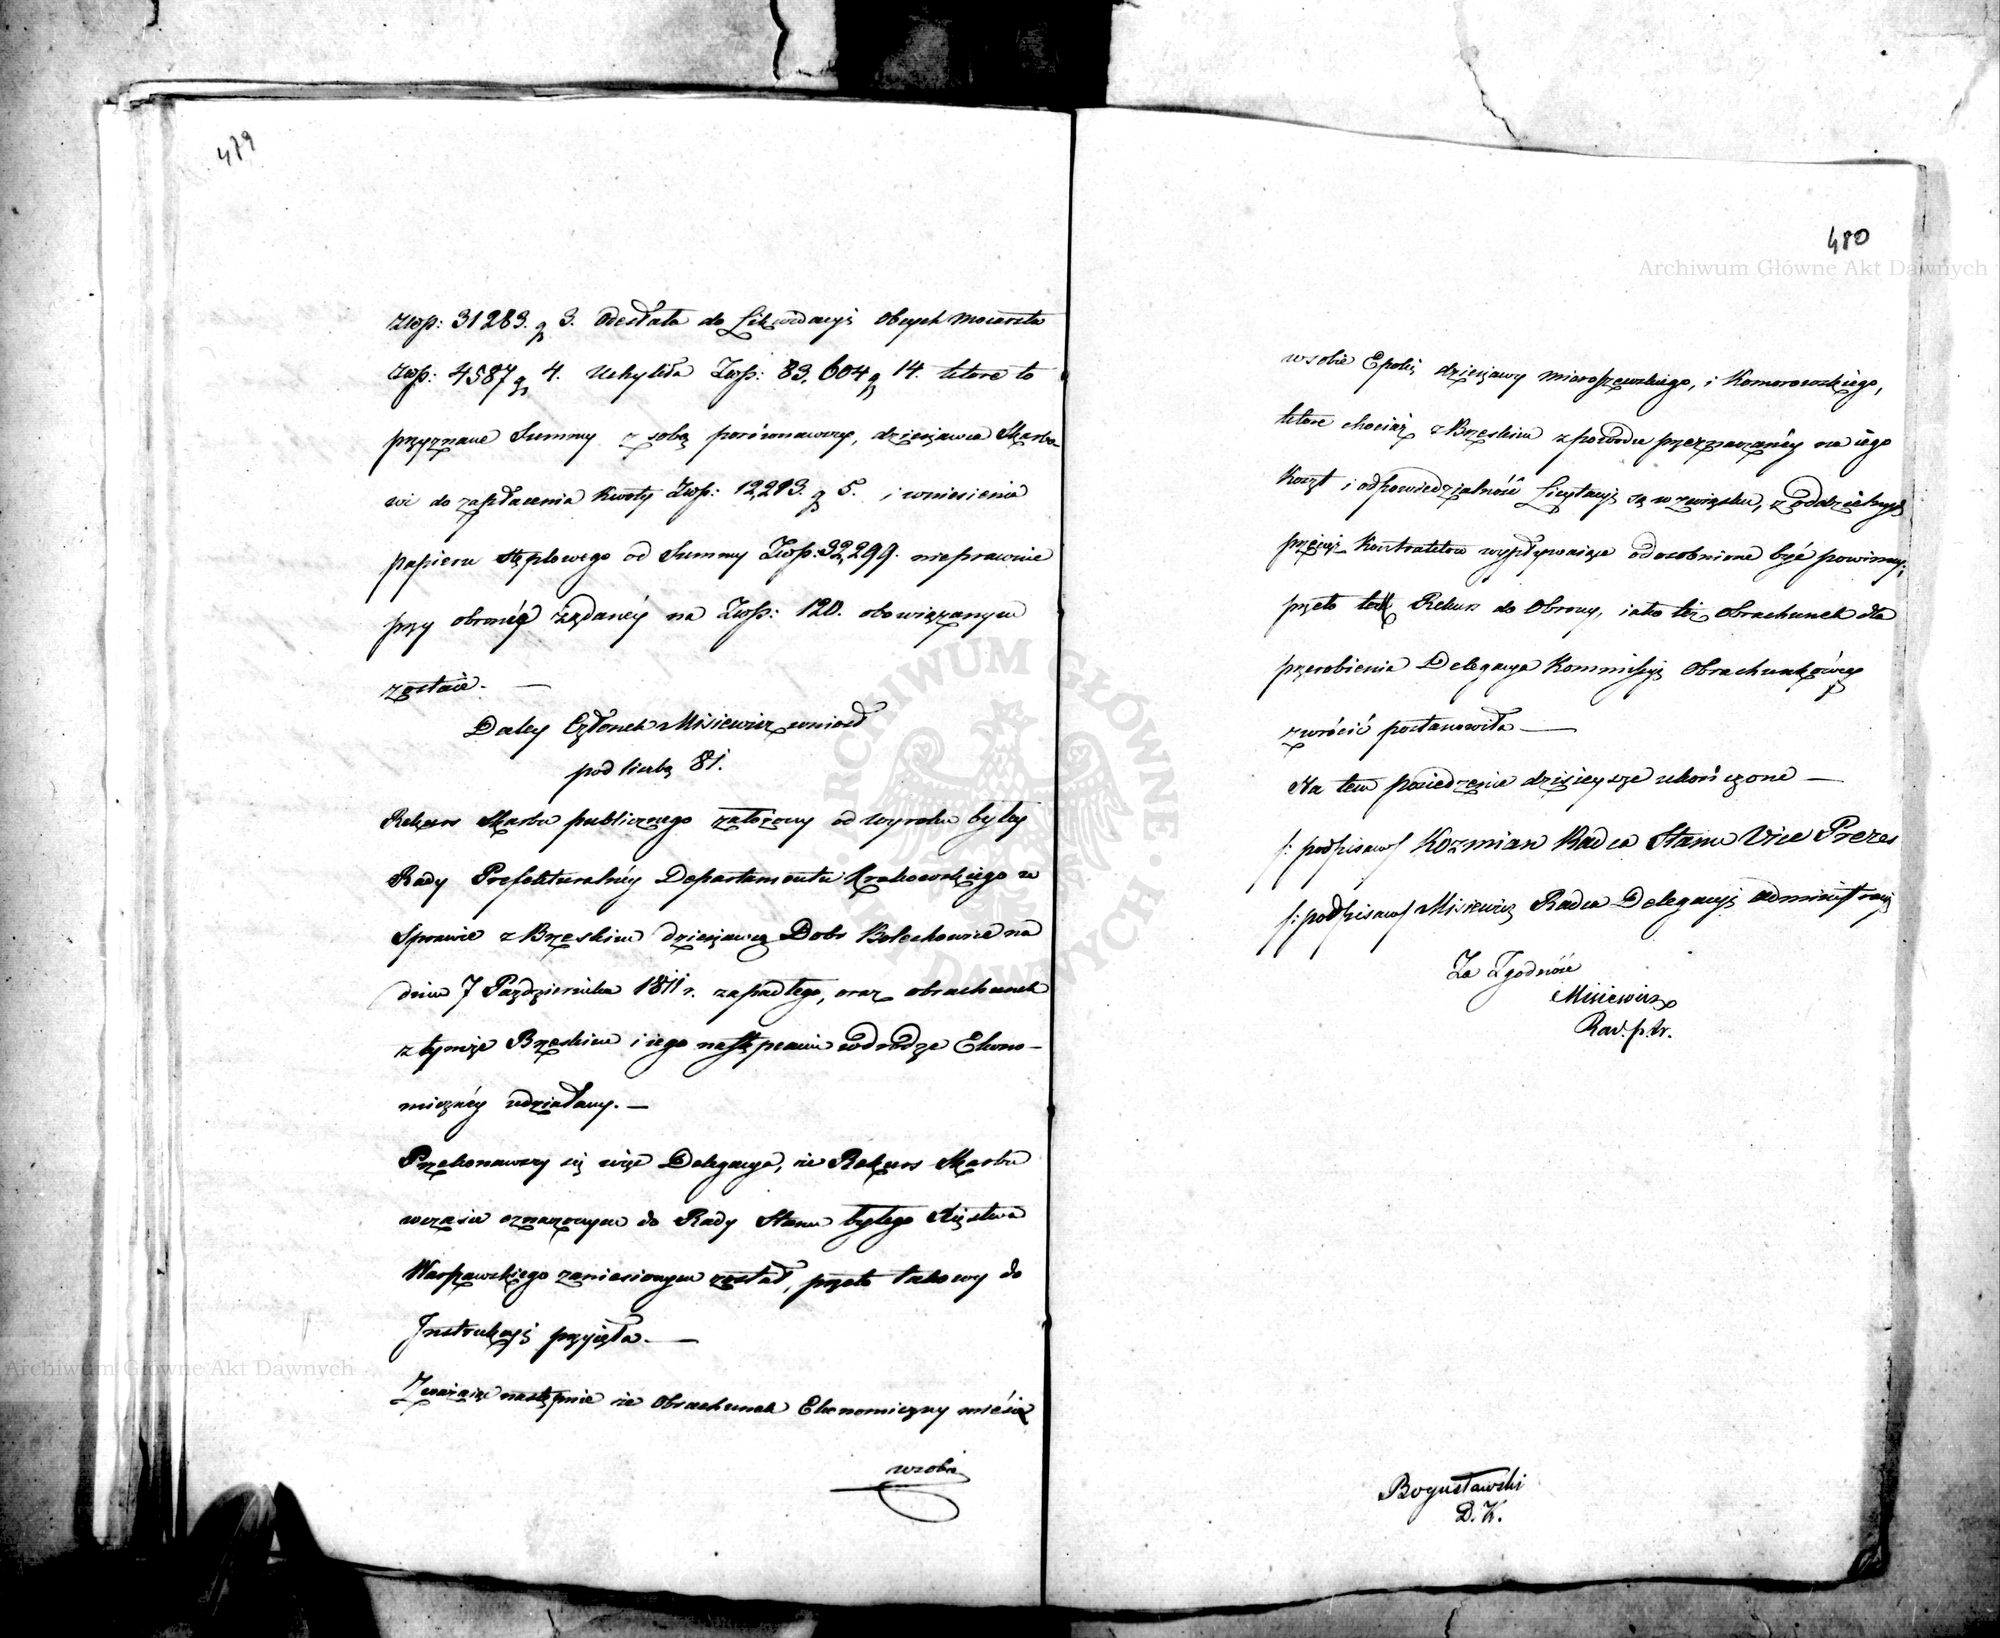 479
Złp: 31283. g 3. Odesłała do Likwidacyi Obcych Mocarstw
Złp: 4587 g 4. Uchyliła Złp: 83,604 g 14. które to
przyznane Summy z sobą porównawszy, dzierżawca Skarbo-
wi do zapłacenia Kwoty Złp: 12,213. g 5. i wniesienia
papieru stęplowego od Summy Złp: 32,299. nieprawnie
przy obronie żądaney na Złp: 120. obowiązanym
zostaie. —
Daley Członek Misiewicz wniosł
pod liczbą 81.
Rekurs Skarbu publicznego założony od wyroku byłey
Rady Prefekturalney Departamentu Krakowskiego w
Sprawie z Brzeskim dzierżawcą Dobr Bolechowice na
dniu 7 Października 1811 r. zapadłego, oraz obrachunek
z tymże Brzeskim i iego następcami w drodze Ekono-
miczney udziałany. —
Przekonawszy się więc Delegacya, że Rekurs Skarbu
w czasie oznaczonym do Rady Stanu byłego Xięstwa
Warszawskiego zaniesionym został, przeto takowy do
Instrukcyi przyięła. —
Zważaiąc następnie że Obrachunek Ekonomiczny mieści
w sobie
480
Archiwum Główne Akt Dawnych
w sobie Epoki dzierżawy Mieroszewskiego, i Komorowskiego,
które chociaż z Brzeskim z powodu przeznaczoney na iego
Koszt i odpowiedzialność Licytacyi są w związku, z oddzielnych
przecież Kontraktow wypływaiące odosobnione być powinny;
przeto tak Rekurs do Obrony, iako też Obrachunek dla
przerobienia Delegacya Kommissyi Obrachunkowey
zwrócić postanowiła —
Na tem posiedzenie dzisieysze ukończone —
/: podpisano/ Kozmian Radca Stanu Vice Prezes
/: podpisano/ Misiewicz Radca Delegacyi Administracyi
Za Zgodność
Misiewicz
Rad. p. tr.
Bogusławski
D. K.
ARCHIWUM GŁÓWNE AKT DAWNYCH
Archiwum Główne Akt Dawnych